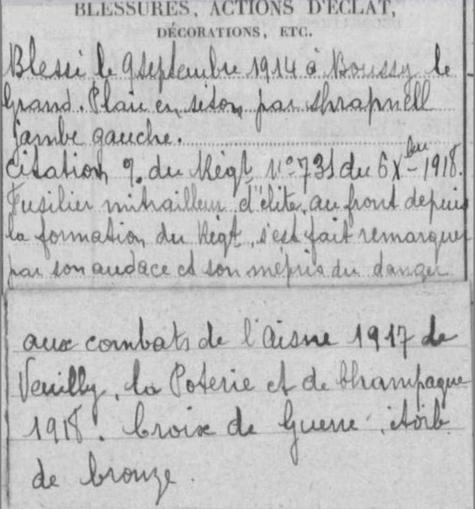 BLESSURES, ACTIONS D'ÉCLAT,
DÉCORATIONS, ETC.
Blessé le 9 septembre 1914 à Boussy le
Grand. Plaie en séton par shrapnell
jambe gauche.
Citation O. du Régt N° 731 du 6 Xbre 1918.
Fusilier mitrailleur d'élite, au front depuis
la formation du Régt, s'est fait remarquer
par son audace et son mépris du danger
aux combats de l'Aisne 1917 de
Veuilly, la Poterie et de Champagne
1918. Croix de Guerre, étoile
de bronze.